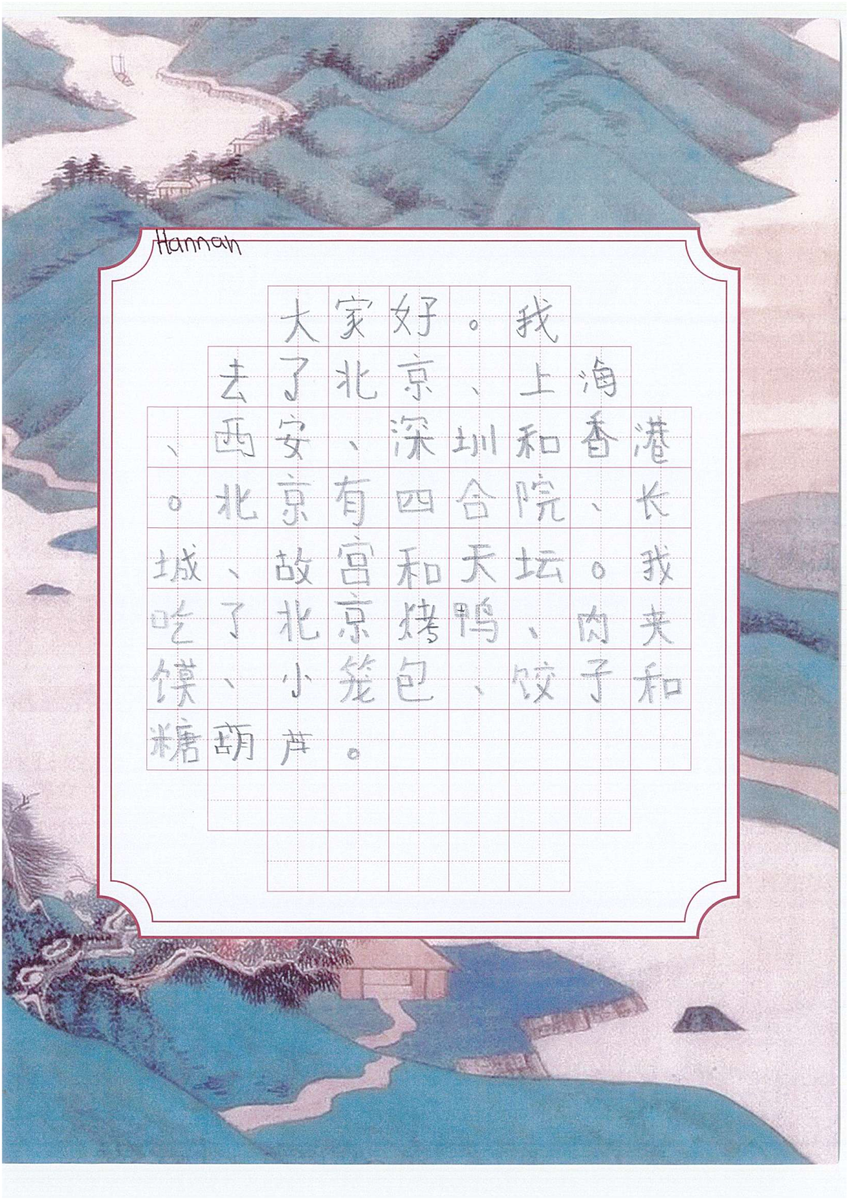 Hannah
大家好。我
去了北京、上海
、西安、深圳和香港
。北京有四合院、长
城、故宫和天坛。我
吃了北京烤鸭、肉夹
馍、小笼包、饺子和
糖葫芦。